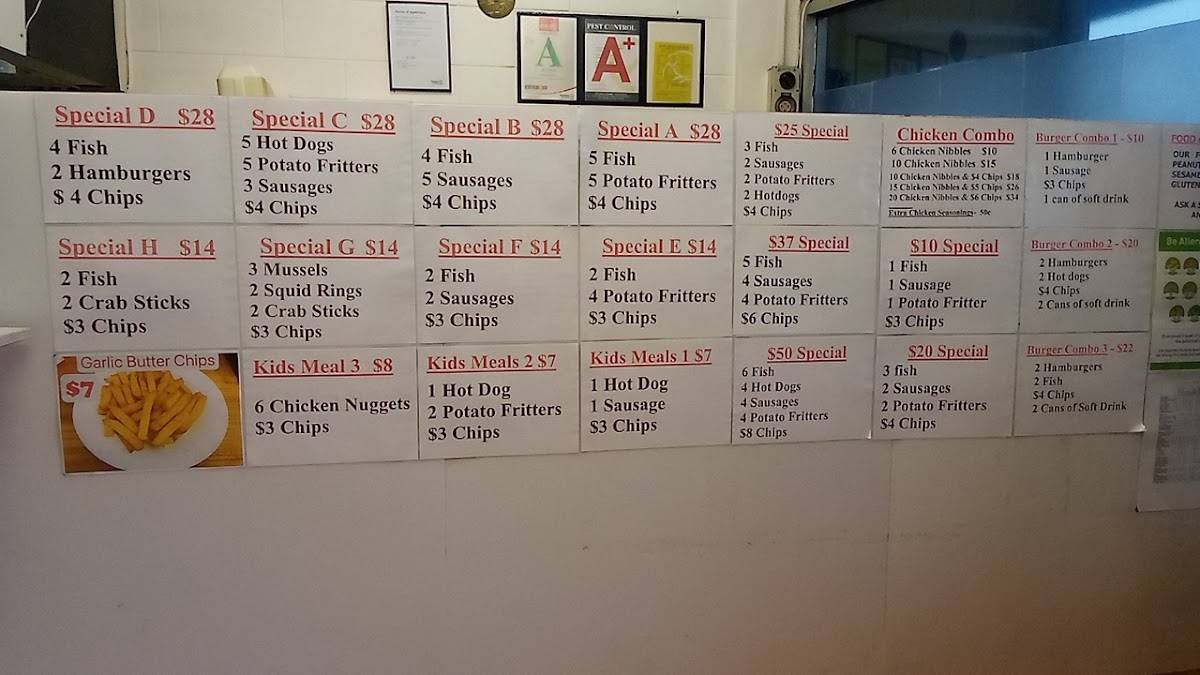 A
PEST CONTROL
A+
Special D $28
4 Fish
2 Hamburgers
$ 4 Chips
Special C $28
5 Hot Dogs
5 Potato Fritters
3 Sausages
$4 Chips
Special B $28
4 Fish
5 Sausages
$4 Chips
Special A $28
5 Fish
5 Potato Fritters
$4 Chips
$25 Special
3 Fish
2 Sausages
2 Potato Fritters
2 Hotdogs
$4 Chips
Chicken Combo
6 Chicken Nibbles $10
10 Chicken Nibbles $15
10 Chicken Nibbles & $4 Chips $18
15 Chicken Nibbles & $5 Chips $26
20 Chicken Nibbles & $6 Chips $34
Extra Chicken Seasonings- 50c
Burger Combo 1 - $10
1 Hamburger
1 Sausage
$3 Chips
1 can of soft drink
FOOD
OUR
PEANUT
SESAME
GLUTEN
ASK A
Special H $14
2 Fish
2 Crab Sticks
$3 Chips
Special G $14
3 Mussels
2 Squid Rings
2 Crab Sticks
$3 Chips
Special F $14
2 Fish
2 Sausages
$3 Chips
Special E $14
2 Fish
4 Potato Fritters
$3 Chips
$37 Special
5 Fish
4 Sausages
4 Potato Fritters
$6 Chips
$10 Special
1 Fish
1 Sausage
1 Potato Fritter
$3 Chips
Burger Combo 2 - $20
2 Hamburgers
2 Hot dogs
$4 Chips
2 Cans of soft drink
Be Aller
Garlic Butter Chips
$7
Kids Meal 3 $8
6 Chicken Nuggets
$3 Chips
Kids Meals 2 $7
1 Hot Dog
2 Potato Fritters
$3 Chips
Kids Meals 1 $7
1 Hot Dog
1 Sausage
$3 Chips
$50 Special
6 Fish
4 Hot Dogs
4 Sausages
4 Potato Fritters
$8 Chips
$20 Special
3 fish
2 Sausages
2 Potato Fritters
$4 Chips
Burger Combo 3 - $22
2 Hamburgers
2 Fish
$4 Chips
2 Cans of Soft Drink